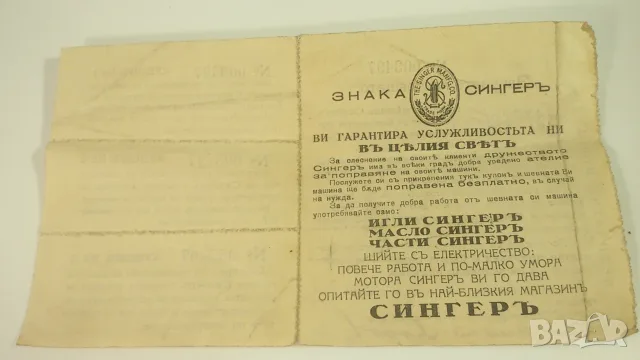 THE SINGER MANFG. CO.
ЗНАКА СИНГЕРЪ
ВИ ГАРАНТИРА УСЛУЖЛИВОСТЬТА НИ
ВЪ ЦѢЛИЯ СВѢТЪ
За олеснение на своитѣ клиенти дружеството
Сингеръ има въ всѣки градъ добре уредено ателие
за поправяне на своитѣ машини.
Послужете си съ прикрепения тукъ купонъ и шевната Ви
машина ще бѫде поправена безплатно, въ случай
на нужда.
За да получите добра работа отъ шевната си машина
употрѣбявайте само:
ИГЛИ СИНГЕРЪ
МАСЛО СИНГЕРЪ
ЧАСТИ СИНГЕРЪ
ШИЙТЕ СЪ ЕЛЕКТРИЧЕСТВО:
ПОВЕЧЕ РАБОТА И ПО-МАЛКО УМОРА
МОТОРА СИНГЕРЪ ВИ ГО ДАВА
ОПИТАЙТЕ ГО ВЪ НАЙ-БЛИЗКИЯ МАГАЗИНЪ
СИНГЕРЪ
BAZAR.BG